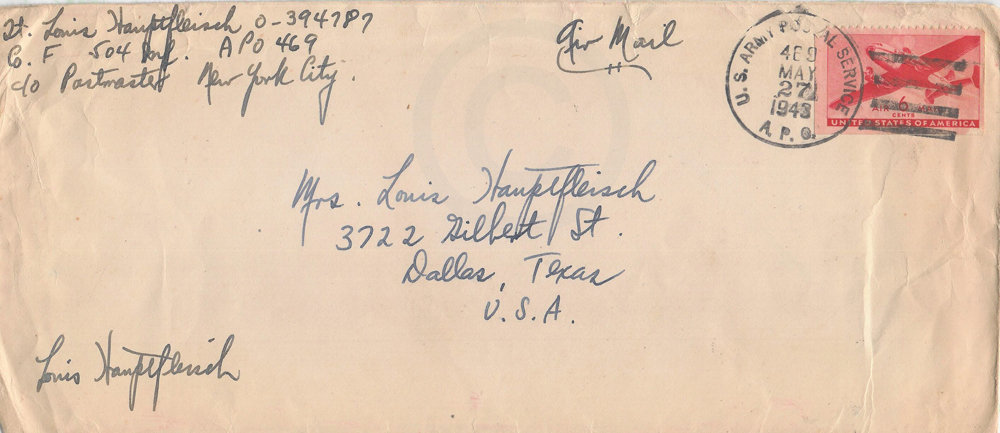 Lt. Louis Hauptfleisch O-394787
Co. F 504 Inf. APO 469
c/o Postmaster New York City.
Air Mail
U.S. ARMY POSTAL SERVICE
469
MAY
27
1943
A.P.O.
AIR MAIL
6
CENTS
UNITED STATES OF AMERICA
Mrs. Louis Hauptfleisch
3722 Gilbert St.
Dallas, Texas
U.S.A.
Louis Hauptfleisch